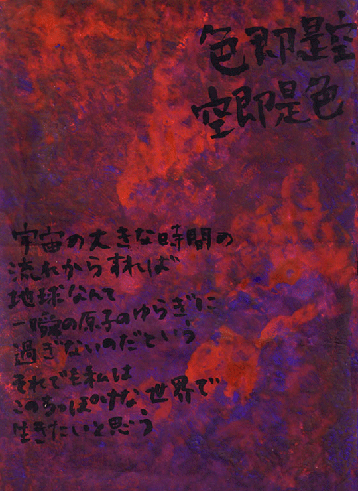 色即是空
空即是色
宇宙の大きな時間の
流れからすれば
地球なんて
一瞬の原子のゆらぎに
過ぎないのだという
それでも私は
このちっぽけな世界で
生きたいと思う